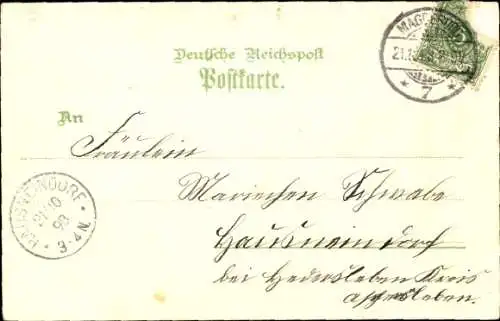 Deutsche Reichspost
Postkarte.
An
Fräulein
Mariechen Schwabe
Hausneindorf
bei Hedersleben Kreis
Aschersleben.
MAGDEBURG
21.10
* 7 *
HAUSNEINDORF
21/10
99
3-4N.